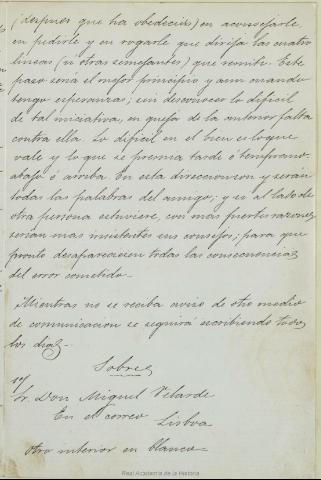 (despues que ha obedecido) en aconsejarle,
en pedirle y en rogarle que dirija las cuatro
lineas (u otras semejantes) que remití. Este
paso será el mejor principio y aun cuando
tengo esperanzas; sin desconocer lo dificil
de tal iniciativa, en quejas de la anterior falta
contra ella. Lo dificil en el bien es lo que
vale y lo que se premia tarde ó temprano
abajo ó arriba. En esta direccion son y serán
todas las palabras del amigo; y si al lado de
otra persona estuviere, con mas fuertes razones
serian mas insistentes sus consejos; para que
pronto desapareciesen todas las consecuencias
del error cometido.
Mientras no se reciba aviso de otro medio
de comunicacion se seguirá escribiendo todos
los dias.
Sobre
Sr. Don Miguel Velarde
En el correo
Lisboa
Otro interior en blanco=
Real Academia de la Historia